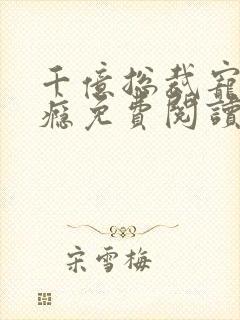 千億總裁寵
癮免費閱讀
宋雪梅